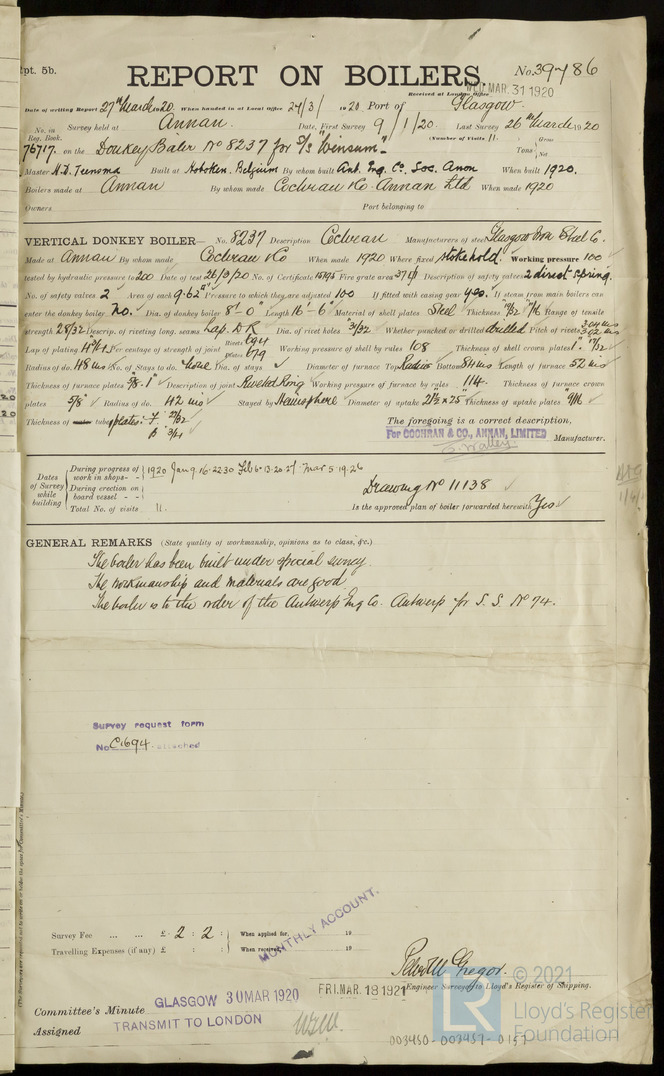 Rpt. 5b.
REPORT ON BOILERS.
No. 39786
Received at London Office WED. MAR. 31 1920
Date of writing Report 27th March 1920. When handed in at Local Office 29/3/1920 Port of Glasgow.
No. in Reg. Book. Survey held at Annan. Date, First Survey 9/1/20. Last Survey 26th March 1920
(Number of Visits 11.
76717. on the Donkey Boiler No 8237 for S/S "Wensum" Tons { Gross Net
Master H.D. Teensma Built at Hoboken. Belgium By whom built Ant. Eng. Co. Soc. Anon When built 1920.
Boilers made at Annan By whom made Cochran & Co. Annan Ltd When made 1920
Owners Port belonging to
VERTICAL DONKEY BOILER— No. 8237 Description Cochran Manufacturers of steel Glasgow Iron Steel Co.
Made at Annan By whom made Cochran & Co When made 1920 Where fixed Stokehold. Working pressure 100
tested by hydraulic pressure to 200 Date of test 26/3/20 No. of Certificate 15195 Fire grate area 37 Description of safety valves 2 direct spring.
No. of safety valves 2 Area of each 9.62" Pressure to which they are adjusted 100 If fitted with easing gear yes. If steam from main boilers can
enter the donkey boiler No. Dia. of donkey boiler 8'-0" Length 16'-6" Material of shell plates Steel Thickness 19/32" 7/16 Range of tensile
strength 28/32 Descrip. of riveting long. seams Lap. D R Dia. of rivet holes 3/32 Whether punched or drilled drilled Pitch of rivets
Lap of plating Per centage of strength of joint Rivets Plates 679 Working pressure of shell by rules 108 Thickness of shell crown plates 17/32
Radius of do. 48 ins No. of Stays to do. None Dia. of stays Diameter of furnace Top Radius Bottom 84 ins Length of furnace 52 ins
Thickness of furnace plates 5/8 . 1" Description of joint Riveted Ring Working pressure of furnace by rules 114. Thickness of furnace crown
plates 5/8" Radius of do. 42 ins Stayed by Hemisphere Diameter of uptake 21½ x 25" Thickness of uptake plates 9/16"
Thickness of tube plates: F 27/32 B 3/4
The foregoing is a correct description,
For COCHRAN & CO., ANNAN, LIMITED Manufacturer.
Dates of Survey while building
During progress of work in shops- - 1920 Jan 9. 16. 22. 30 Feb 6. 13. 20. 27. Mar 5. 19. 26
During erection on board vessel - -
Total No. of visits 11.
Drawing No 11138
Is the approved plan of boiler forwarded herewith Yes
GENERAL REMARKS (State quality of workmanship, opinions as to class, &c.)
The boiler has been built under special survey.
The workmanship and materials are good
The boiler is to the order of the Antwerp Eng Co. Antwerp for S.S. No 74.
Survey request form
No C1694. attached
Survey Fee ... ... £ 2 : 2 : When applied for, 19
Travelling Expenses (if any) £ : : When received, 19
MONTHLY ACCOUNT.
Engineer Surveyor to Lloyd's Register of Shipping.
FRI. MAR. 18 1921
Committee's Minute GLASGOW 30 MAR 1920
Assigned TRANSMIT TO LONDON
© 2021
LR
Lloyd's Register
Foundation
003450-003457-0157